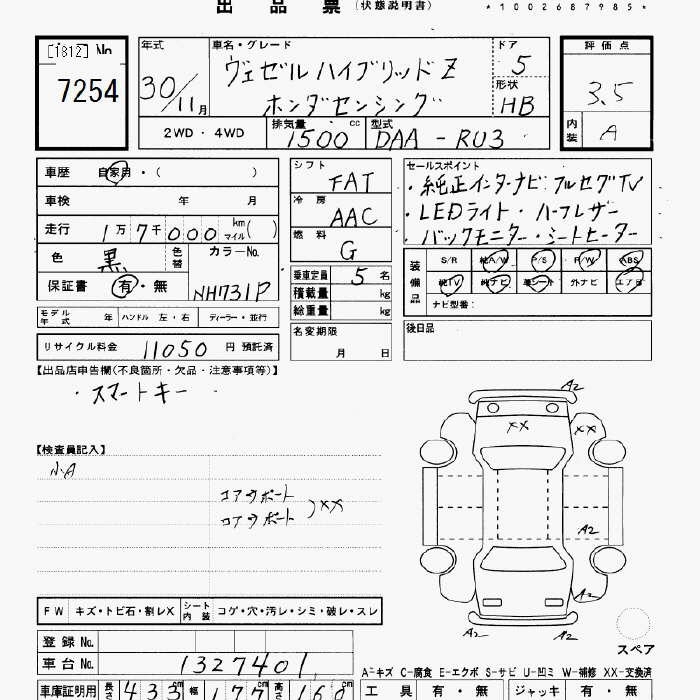 出品票(状態説明書) *1002687985*
[1812] No. 7254
年式 30/11月
車名・グレード ヴェゼルハイブリッドZ
ホンダセンシング
ドア 5
形状 HB
評価点 3.5
内装 A
2WD・4WD 排気量 1500 cc 型式 DAA-RU3
車歴 自家用・( )
車検 年 月
走行 1万7千000 kmマイル( )
色 黒 色替 カラーNo. NH731P
保証書 有・無
シフト FAT
冷房 AAC
燃料 G
乗車定員 5名
積載量 kg
総重量 kg
名変期限 月 日
セールスポイント
・純正インターナビ・フルセグTV
・LEDライト・ハーフレザー
・バックモニター・シートヒーター
装備品 S/R 純A/W P/S P/W ABS
純TV 純ナビ 革シート 外ナビ エアB
ナビ型番:
後日品
モデル年式 年 ハンドル 左・右 ディーラー・並行
リサイクル料金 11050 円 預託済
【出品店申告欄(不良箇所・欠品・注意事項等)】
・スマートキー
【検査員記入】
小A
コアサポート
コアサポート )XX
A2
XX XX
A2
A2 A2
スペア
FW キズ・トビ石・割レX シート内装 コゲ・穴・汚レ・シミ・破レ・スレ
登録No.
車台No. 1327401
A-キズ C-腐食 E-エクボ S-サビ U-凹ミ W-補修 XX-交換済
車庫証明用 長さ 433cm 幅 177cm 高さ 160cm
工具 有・無 ジャッキ 有・無